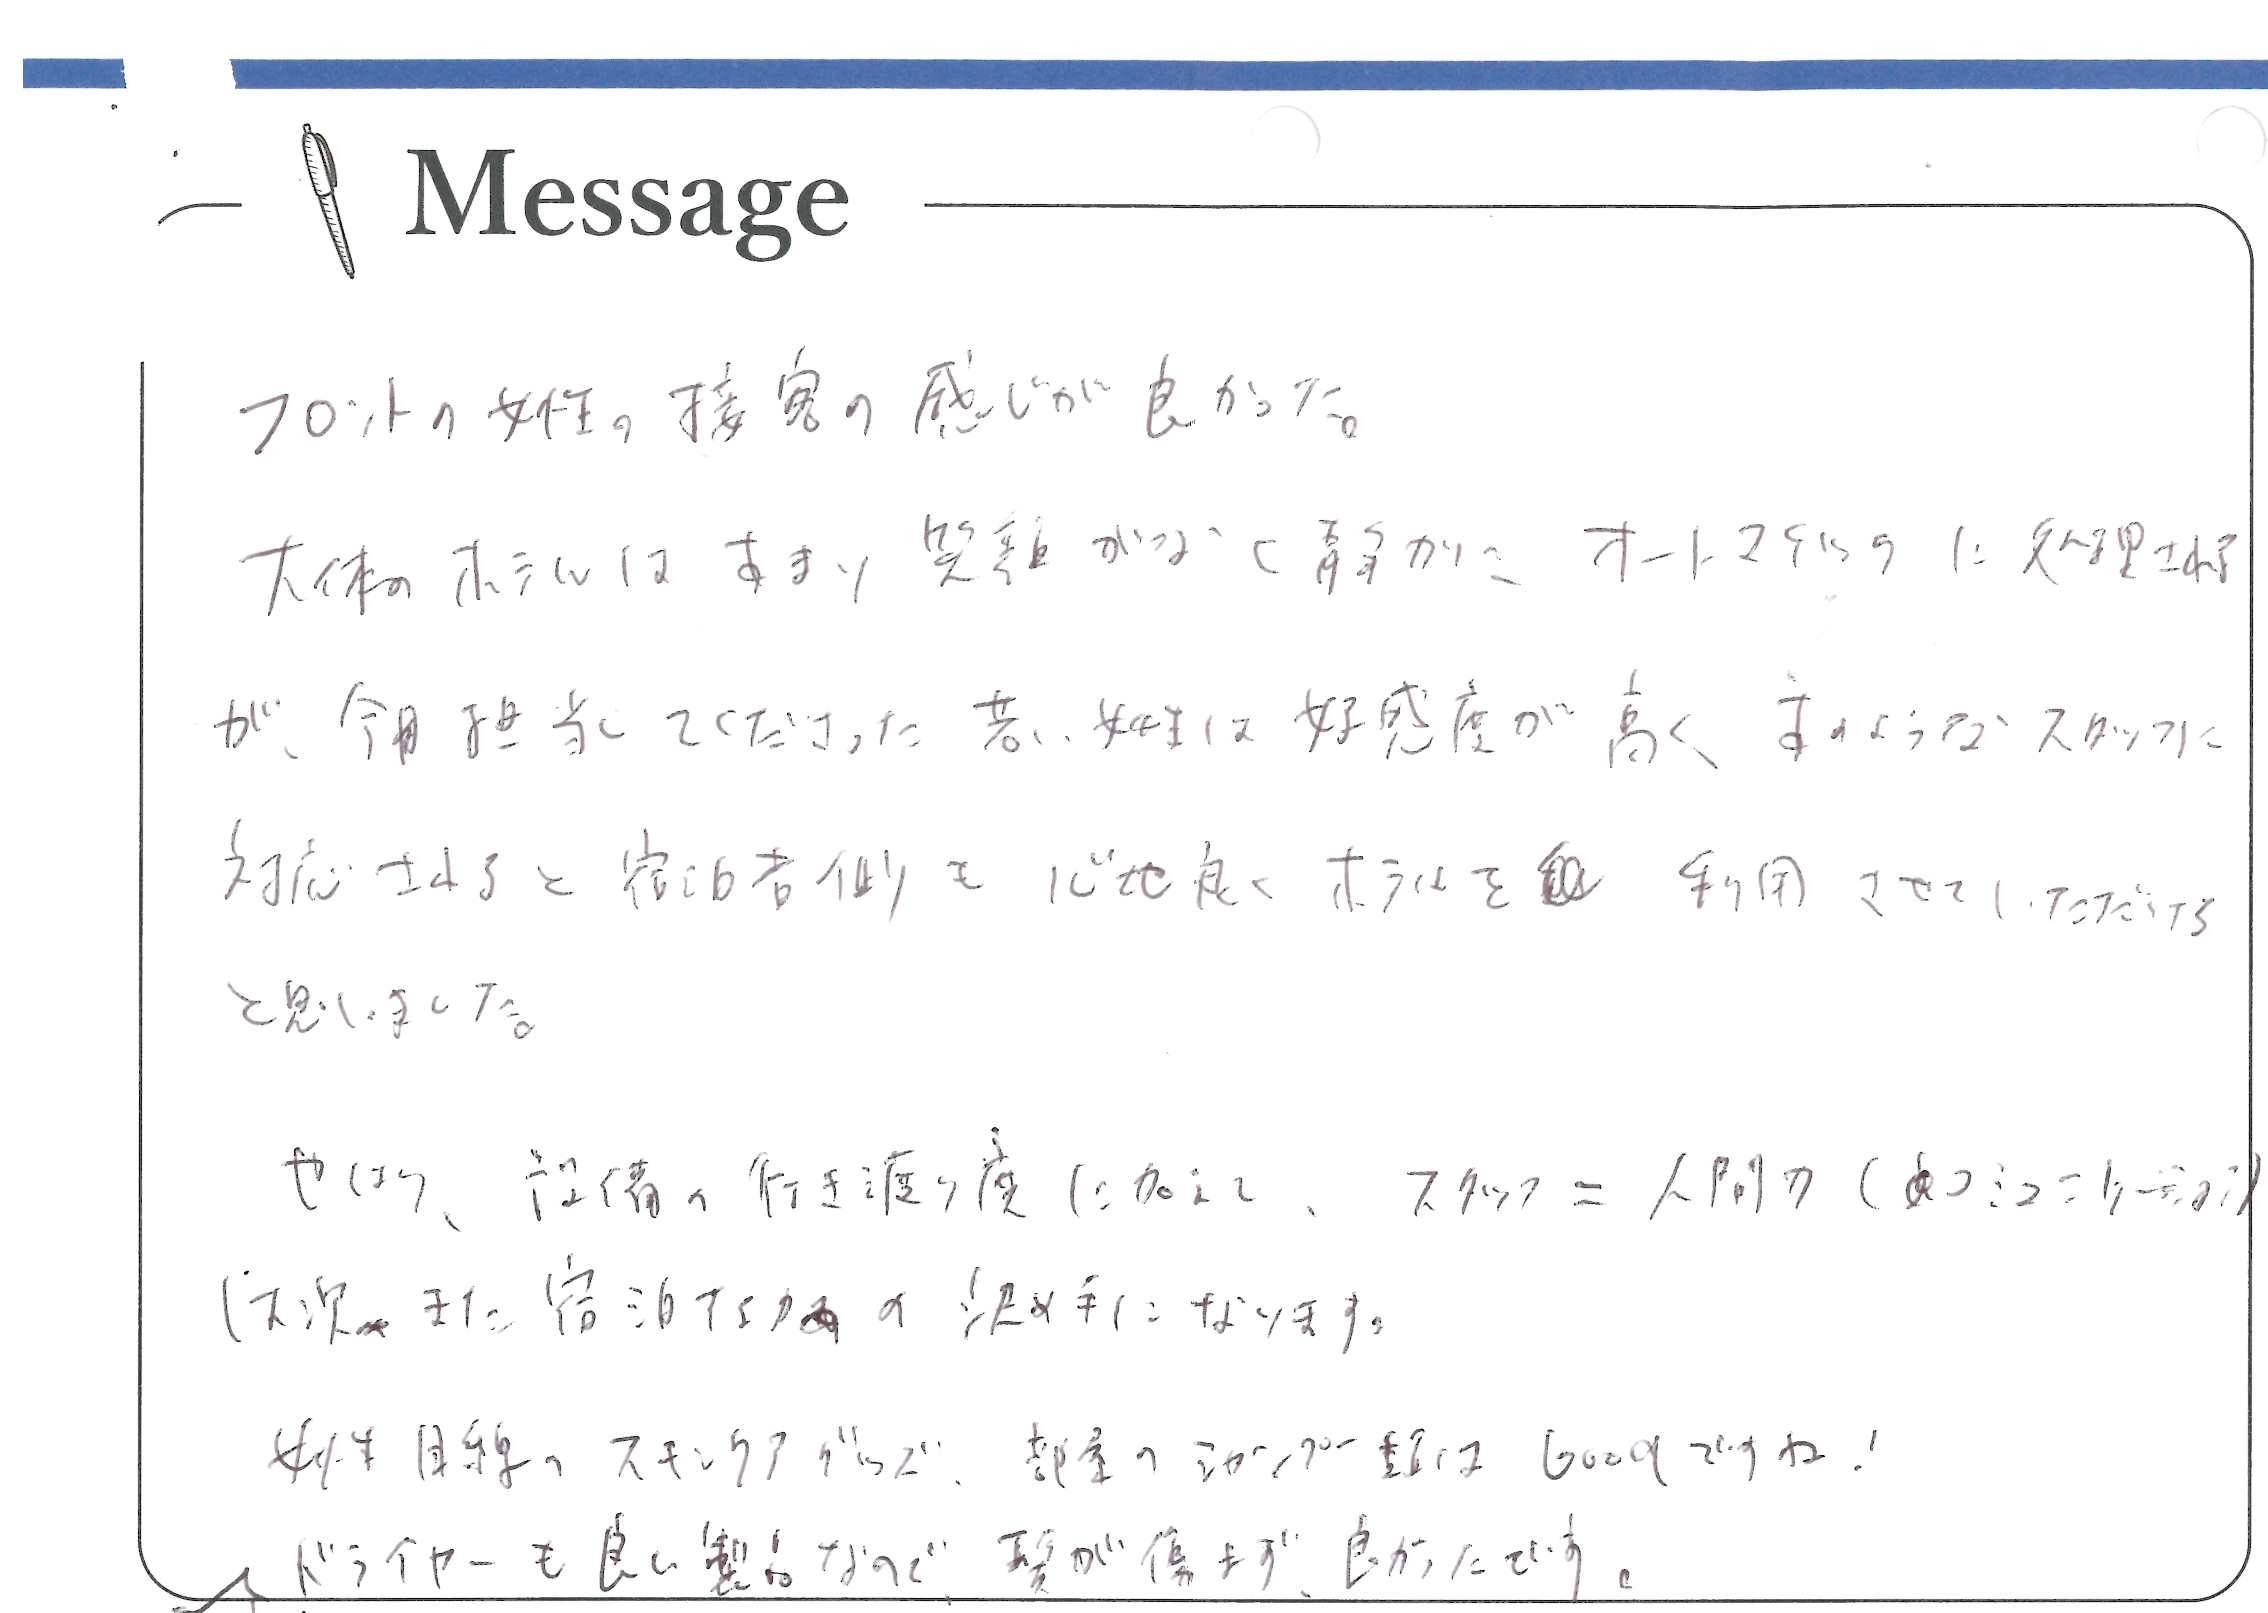 Message
フロントの女性の接客の感じが良かった。
大体のホテルはあまり笑顔がなくて静かにオートマチックに処理される
が、今日担当してくださった若い女性は好感度が高く、あのようなスタッフに
対応されると宿泊者側も心地良くホテルを利用させていただける
と思いました。
やはり、設備の行き渡り度に加えて、スタッフ=人間力(コミュニケーション)
は次へまた宿泊するかの決め手になります。
女性目線のスキンケアグッズ、部屋のシャンプー類はGoodですね!
ドライヤーも良い製品なので、髪が傷まず、良かったです。